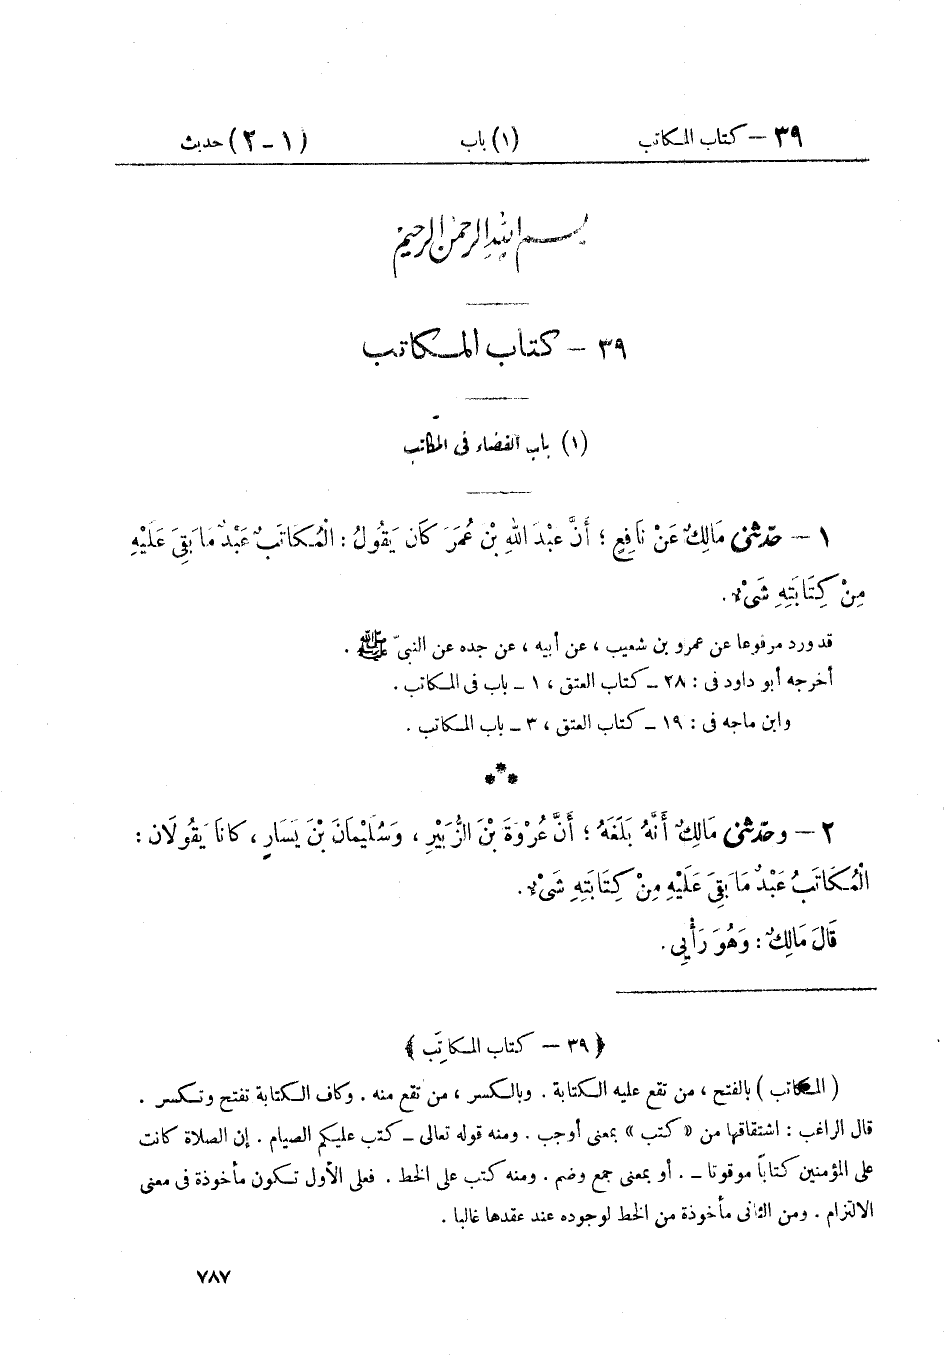 ٣٩ – كتاب المكاتب (١) باب (١ – ٢) حديث
بسم الله الرحمن الرحيم
٣٩ – كتاب المكاتب
(١) باب القضاء فى المكاتب
١ – حدّثنى مَالِكٌ عَنْ نَافِعٍ ؛ أَنَّ عَبْدَ اللهِ بْنَ عُمَرَ كَانَ يَقُولُ : الْمُكَاتَبُ عَبْدٌ مَا بَقِىَ عَلَيْهِ
مِنْ كِتَابَتِهِ شَىْءٌ .
قد ورد مرفوعا عن عمرو بن شعيب ، عن أبيه ، عن جده عن النبىّ ﷺ .
أخرجه أبو داود فى : ٢٨ – كتاب العتق ، ١ – باب فى المكاتب .
وابن ماجه فى : ١٩ – كتاب العتق ، ٣ – باب المكاتب .
***
٢ – وحدّثنى مَالِكٌ أَنَّهُ بَلَغَهُ ؛ أَنَّ عُرْوَةَ بْنَ الزُّبَيْرِ ، وَسُلَيْمَانَ بْنَ يَسَارٍ ، كَانَا يَقُولَانِ :
الْمُكَاتَبُ عَبْدٌ مَا بَقِىَ عَلَيْهِ مِنْ كِتَابَتِهِ شَىْءٌ .
قَالَ مَالِكٌ : وَهُوَ رَأْيِى .
﴿ ٣٩ – كتاب المكاتَِب ﴾
( المكاتب ) بالفتح ، من تقع عليه الكتابة . وبالكسر ، من تقع منه . وكاف الكتابة تفتح وتكسر .
قال الراغب : اشتقاقها من «كتب» بمعنى أوجب . ومنه قوله تعالى – كتب عليكم الصيام . إن الصلاة كانت
على المؤمنين كتاباً موقوتا – . أو بمعنى جمع وضم . ومنه كتب على الخط . فعلى الأول تكون مأخوذة فى معنى
الالتزام . ومن الثانى مأخوذة من الخط لوجوده عند عقدها غالبا .
٧٨٧